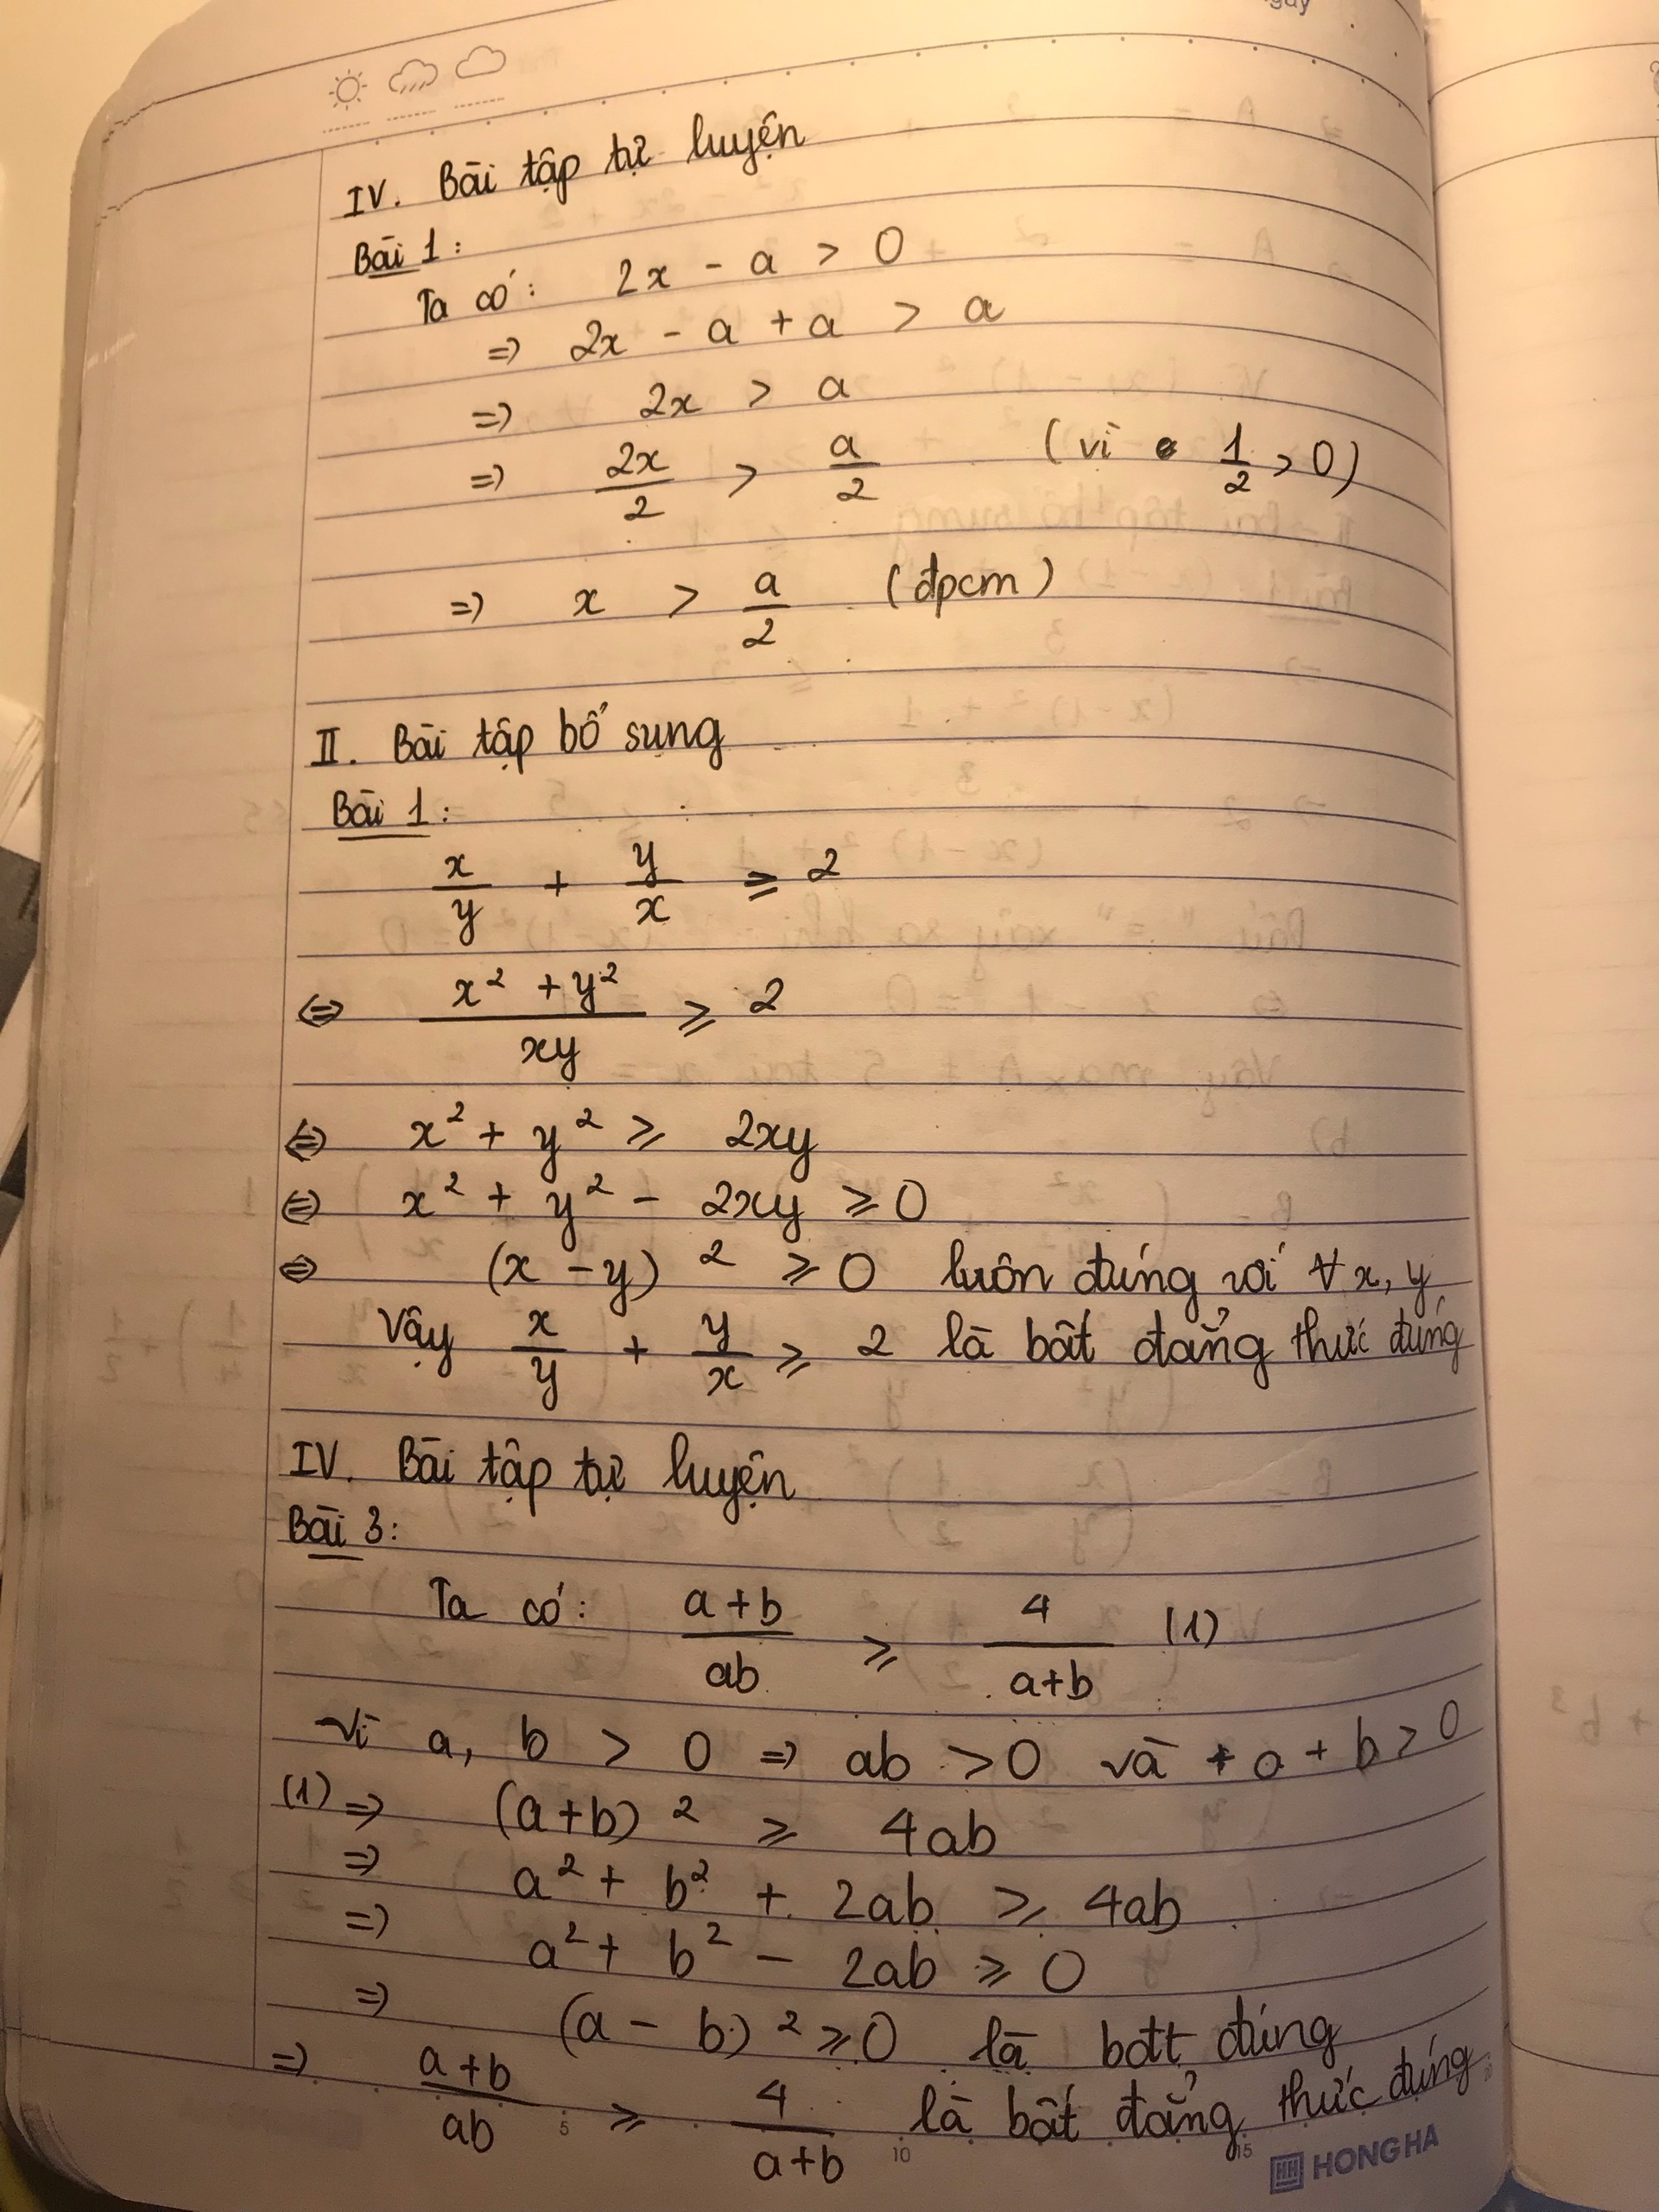 gày
IV. Bài tập tự luyện
Bài 1:
Ta có: 2x - a > 0
=> 2x - a + a > a
=> 2x > a
=> 2x/2 > a/2 (vì 1/2 > 0)
=> x > a/2 (đpcm)
II. Bài tập bổ sung
Bài 1:
x/y + y/x ≥ 2
⇔ (x² + y²)/xy ≥ 2
⇔ x² + y² ≥ 2xy
⇔ x² + y² - 2xy ≥ 0
⇔ (x - y)² ≥ 0 luôn đúng với ∀x, y
Vậy x/y + y/x ≥ 2 là bất đẳng thức đúng
IV. Bài tập tự luyện
Bài 3:
Ta có: (a+b)/ab ≥ 4/(a+b) (1)
Vì a, b > 0 => ab > 0 và a + b > 0
(1) => (a+b)² ≥ 4ab
=> a² + b² + 2ab ≥ 4ab
=> a² + b² - 2ab ≥ 0
=> (a - b)² ≥ 0 là bđtt đúng
=> (a+b)/ab ≥ 4/(a+b) là bất đẳng thức đúng
5 10 15
HH HONG HA